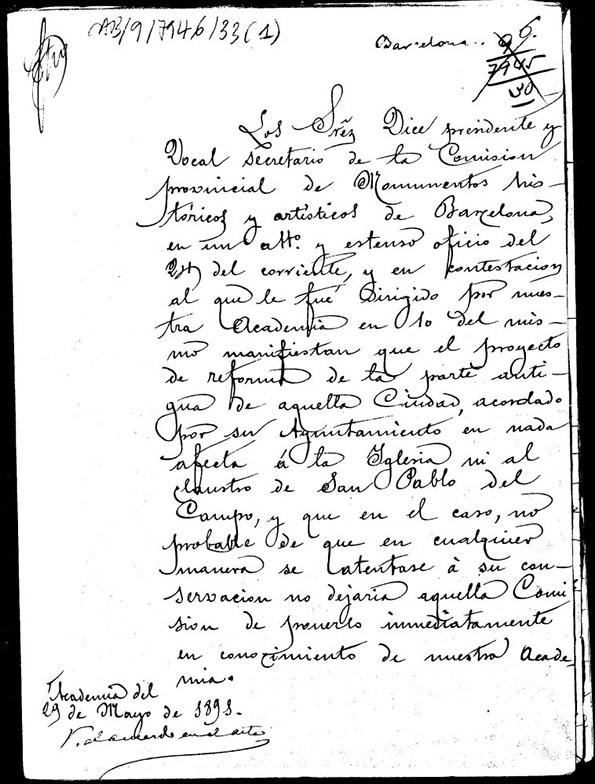 AB/9/7946/33(1)
Barcelona..
96.
7945
30
Los Sres Vice presidente y
Vocal Secretario de la Comision
provincial de Monumentos his-
tóricos y artísticos de Barcelona,
en un atto. y estenso oficio del
24 del corriente, y en contestacion
al que le fué dirigido por nues-
tra Academia en 10 del mis-
mo manifiestan que el proyecto
de reforma de la parte anti-
gua de aquella Ciudad, acordado
por su Ayuntamiento en nada
afecta á la Iglesia ni al
claustro de San Pablo del
Campo, y que en el caso, no
probable de que en cualquier
manera se atentase à su con-
servacion no dejaria aquella Comi
sion de ponerlo inmediatamente
en conocimiento de nuestra Acade-
mia.
Academia del
29 de Mayo de 1891.
V. el acuerdo en el acta